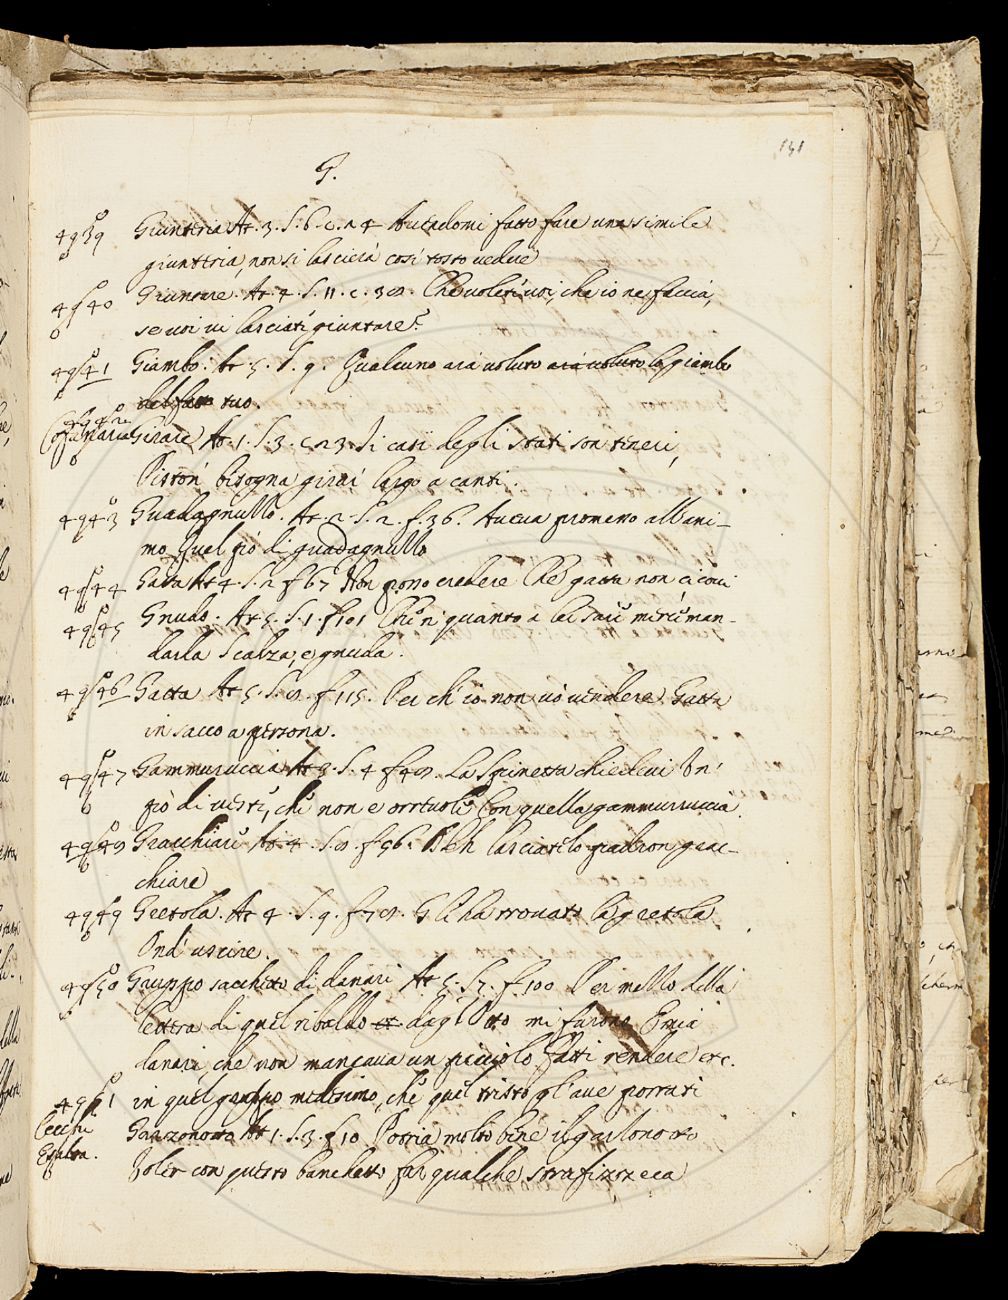 151
G.
4939 Giunteria At. 3. S. 6. c. 14 Avendomi fatto fare una simile
giunteria, non si lascierà così tosto vedere
4940 Giuntare. At. 4. S. 11. c. 38. Che voleti voi, che io ne faccia,
se voi vi lasciati giuntare?
4941 Giambo. At. 5. S. 9. Qualcuno arà voluto arà voluto la giambo
del fatto tuo.
Girare At. 1. S. 3. c. 23. Di casi degli stati son teneri,
bisogna girar largo a canti.
4943 Guadagnullo. At. 2. S. 2. f. 36. Aveva promesso all'ami-
mo quel pò di guadagnullo
4944 Gatta At 4. S. 2 f 67 Non posso credere Che gatta non ci covi
4945 Gnudo. At 5. S. 1. f 101 quanto a lei man-
darla scalza, e gnuda.
4946 Gatta At 5. S. 8. f 115. Per ch' io non vò vendere Gatta
in sacco a persona.
4947 Gammuruccia At 3. S. 4 f 48. La Spinetta chiedevi Un'
pò di vesti, che non è orrevole Con quella gammuruccia
4948 Gracchiare At. 4. S. 8. f 96. Deh lasciatelo padron grac-
chiare
4949 Gretola. At 4. S. 9. f 78. Gli ha trovato la gretola
Ond' uscire.
4950 Gruppo sacchetto di danari At 5. S. 7. f. 100 Per mezzo della
lettra di quel ribaldo et dagl'
danari, che non mancava un picciolo fatti rendere etc.
in quel gruppo medesimo, che quel tristo gl'ave portati
4951 Cecchi Garzonotto At 1. S. 3. f 10 Potria molto bene il garzonotto
Voler con questo banchetto far qualche